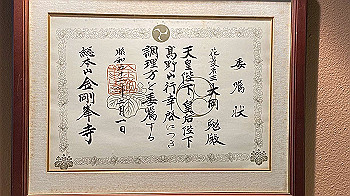 委嘱状
花菱本店 大岡 殿
天皇陛下 皇后陛下
高野山行幸啓につき
調理方を委嘱する
昭和五十二年 月一日
総本山金剛峯寺